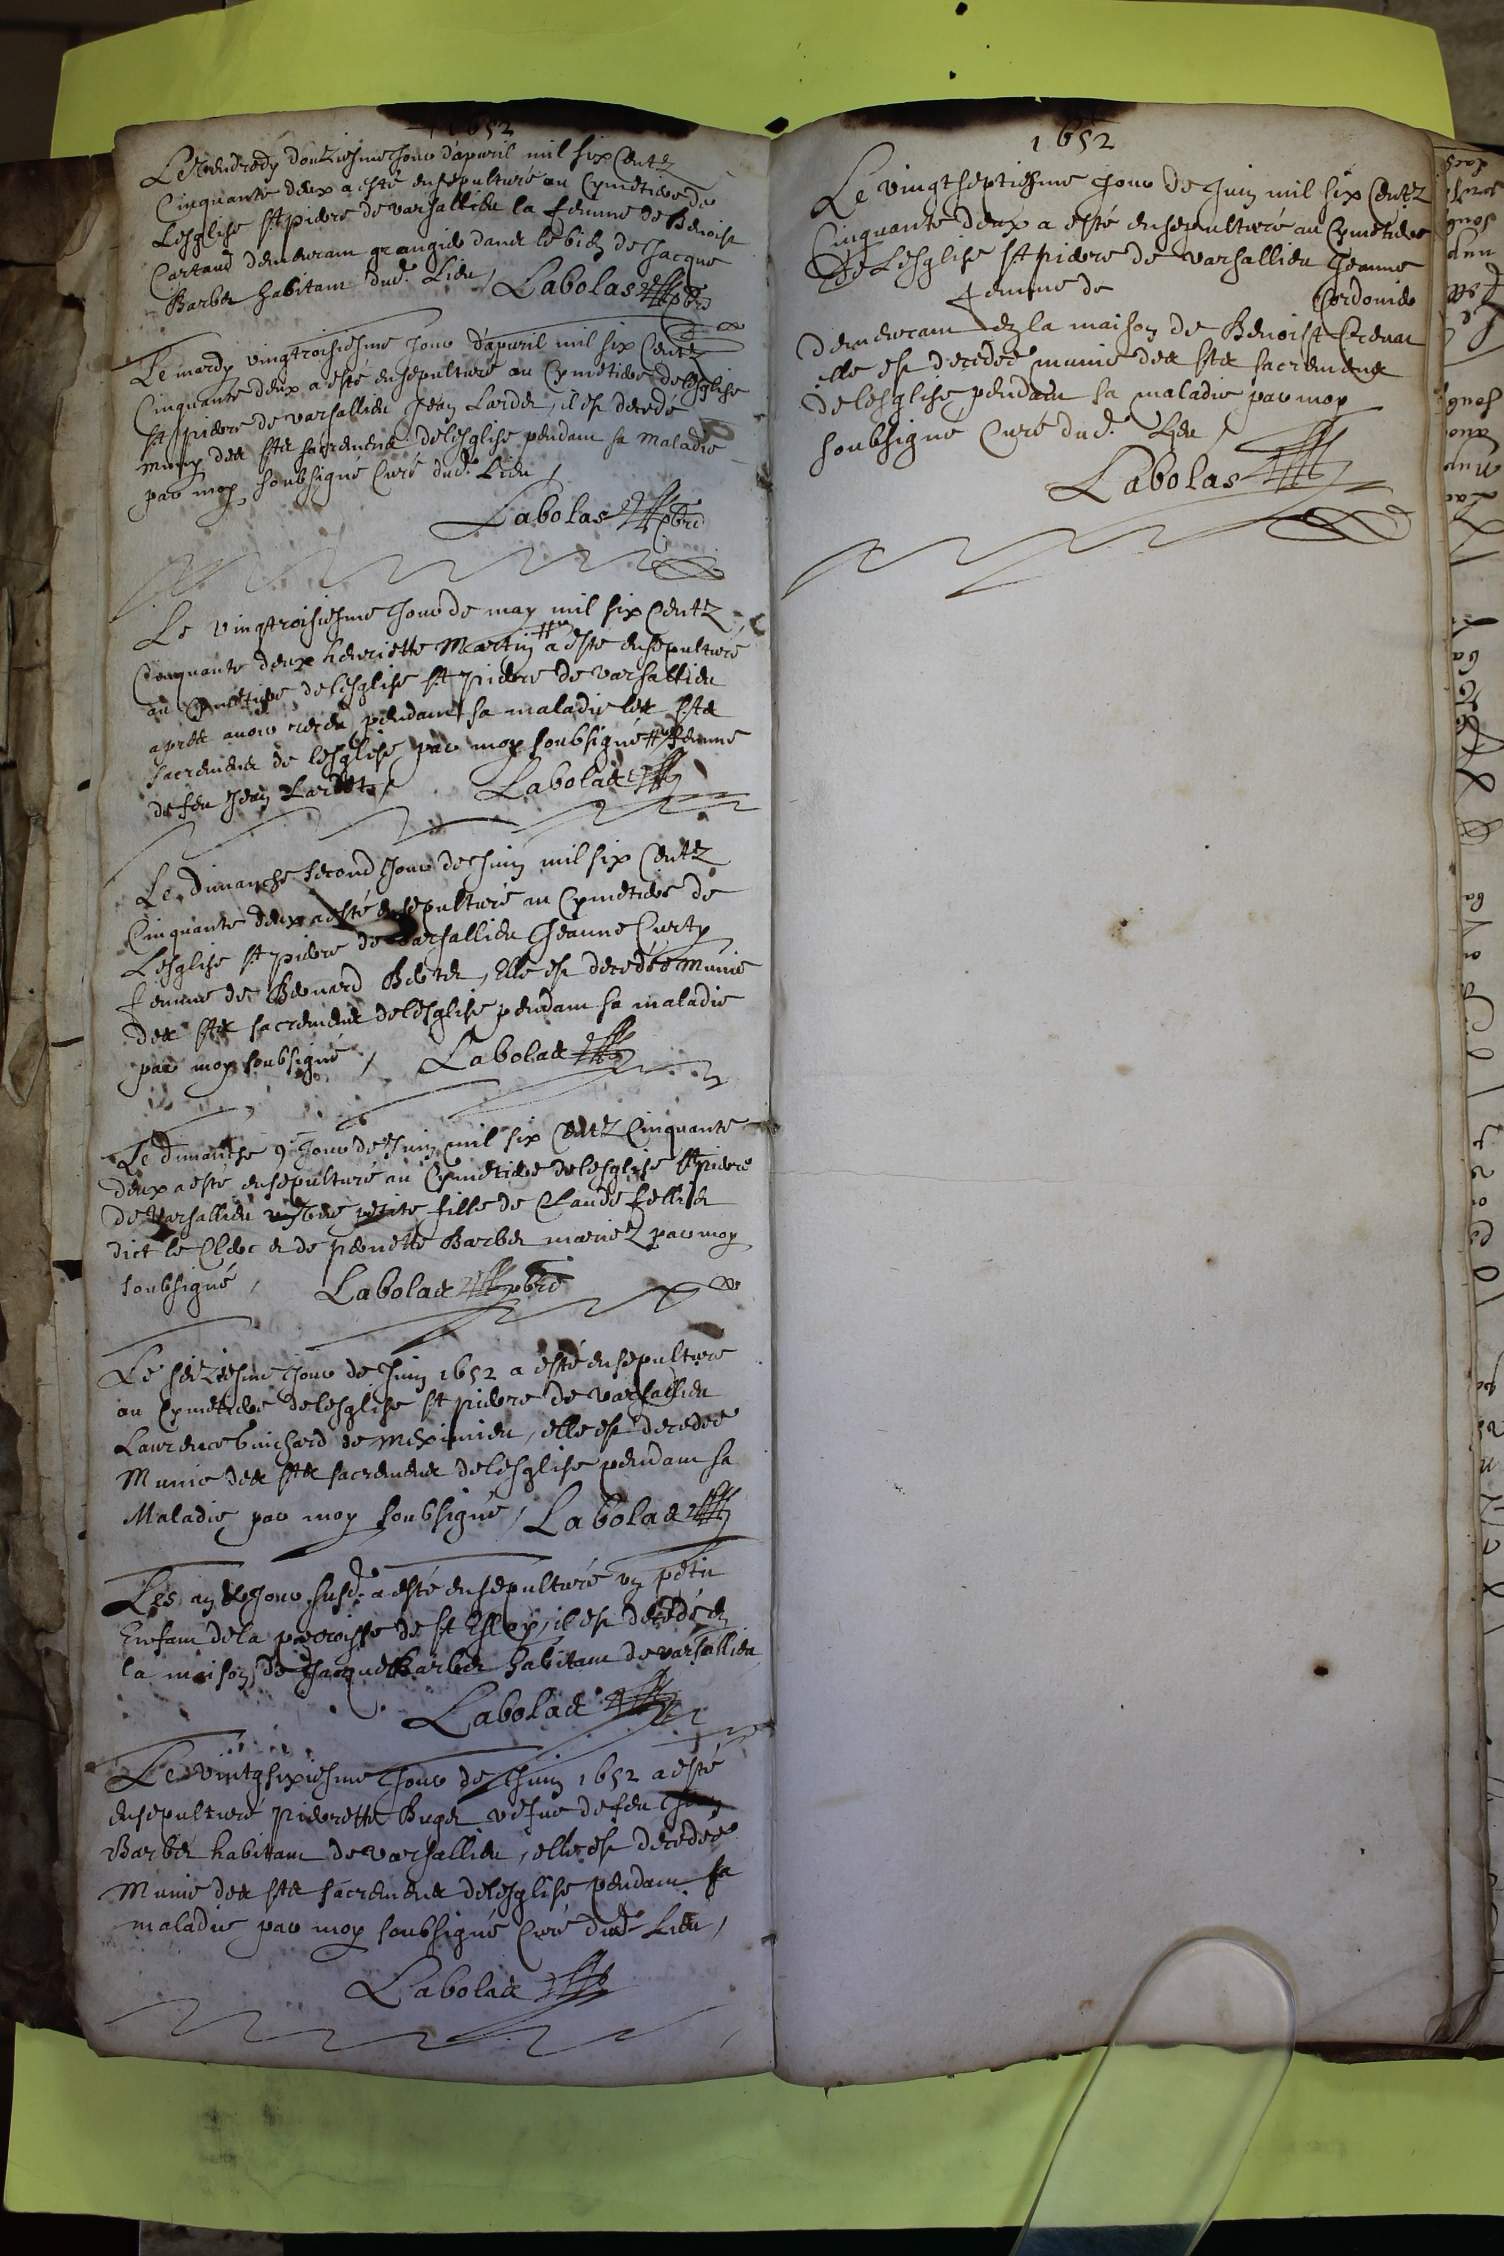 1652
Le vendredy douziesme Jour d'apvril mil six Centz
Cinquante deux a esté ensepulturé au Cymetiere de
Lesglise st pierre de varsallieu la femme de Benoist
Cartaud demeurant grangier dans le bien de Jacque
Barbet habitant dud. Lieu / Labolas pbre
Le mardy vingtroisiesme Jour d'apvril mil six Centz
Cinquante deux a esté ensepulturé au Cymetiere de lesglise
st pierre de varsallieu Jean Lardet, il est decedé
muny des sts sacrements de lesglise pendant sa maladie
par moy soubsigné Curé dud. Lieu /
Labolas pbre
Le vingtroisiesme Jour de may mil six Centz
Cinquante deux henriette Martin # a esté ensepulturé
au Cymetiere de lesglise st pierre de varsallieu
apres avoir receu pendant sa maladie les sts
sacrements de lesglise par moy soubsigné # femme
de feu Jean Lardet / Labolas
Le dimanche second Jour de Juin mil six Centz
Cinquante deux a esté ensepulturé au Cymetiere de
Lesglise st pierre de varsallieu Jeanne Curty
femme de Bernard, Elle est decedée munie
des sts sacrements de lesglise pendant sa maladie
par moy soubsigné / Labolas
Le dimanche 9e Jour de Juin mil six Centz Cinquante
deux a esté ensepulturé au Cymetiere de lesglise st pierre
de varsallieu petite fille de Claude fellier
dict le Clerc et de pernette Barbet mariez par moy
soubsigné / Labolas pbre
Le seiziesme Jour de Juin 1652 a esté ensepulture
au Cymetiere de lesglise st pierre de varsallieu
Laurence buichard de meximieu, elle est decedée
Munie des sts sacrements de lesglise pendant sa
Maladie par moy soubsigné / Labolas
Les an & Jour susd. a esté ensepulturé un petit
Enfant de la parroisse de st Eloy, il est decedé en
la maison de Jacque Barbet habitant de varsallieu
Labolas
Le vintgsixiesme Jour de Juin 1652 a esté
ensepulturé pierrette Buget vefue de feu
Barbet habitant de varsallieu, elle est decedée
Munie des sts sacrements de lesglise pendant sa
maladie par moy soubsigné Curé dud. Lieu /
Labolas
1652
Le vingtseptiesme Jour de Juin mil six Centz
Cinquante deux a esté ensepulturé au Cymetiere
de Lesglise st pierre de varsallieu Jeanne
femme de Cordonier
demeurant en la maison de Benoist
elle est decedée munie des sts sacrements
de lesglise pendant sa maladie par moy
soubsigné Curé dud. Lieu /
Labolas